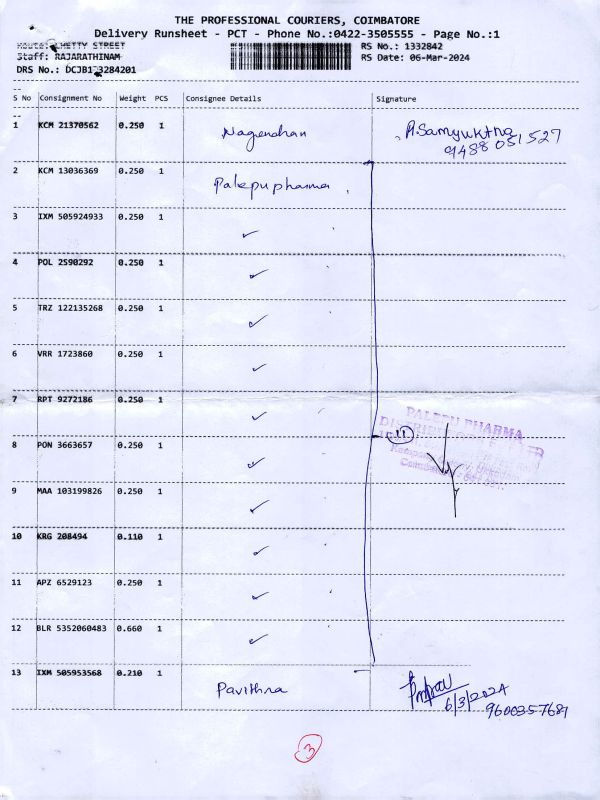 THE PROFESSIONAL COURIERS, COIMBATORE
Delivery Runsheet - PCT - Phone No.:0422-3505555 - Page No.:1
STREET RS No.: 1332842
Staff: RAJARATHINAM RS Date: 06-Mar-2024
DRS No.:
S No Consignment No Weight PCS Consignee Details Signature
1 KCM 21370562 0.250 1 Nagendhan A.Samyuktha
9488 051527
2 KCM 13036369 0.250 1 Palepu pharma
3 IXM 505924933 0.250 1 ✓
4 POL 2590292 0.250 1 ✓
5 TRZ 122135268 0.250 1 ✓
6 VRR 1723860 0.250 1 ✓
7 RPT 9272186 0.250 1 ✓
PALEPU PHARMA
11
8 PON 3663657 0.250 1 ✓
9 MAA 103199826 0.250 1 ✓
10 KRG 208494 0.110 1 ✓
11 APZ 6529123 0.250 1 ✓
12 BLR 5352060483 0.660 1 ✓
13 IXM 505953568 0.210 1 Pavithra
6/3/2024
3